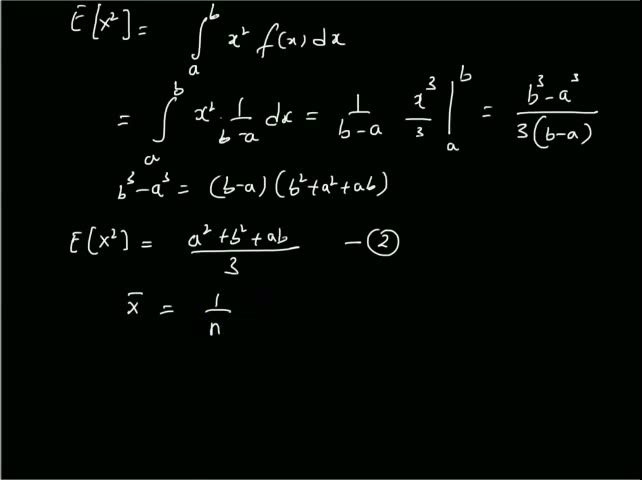 E[x²] = ∫ₐᵇ x² f(x) dx
= ∫ₐᵇ x² · 1/(b-a) dx = 1/(b-a) x³/3 |ₐᵇ = (b³-a³)/(3(b-a))
b³-a³ = (b-a)(b²+a²+ab)
E[x²] = (a²+b²+ab)/3 -②
x̄ = 1/n